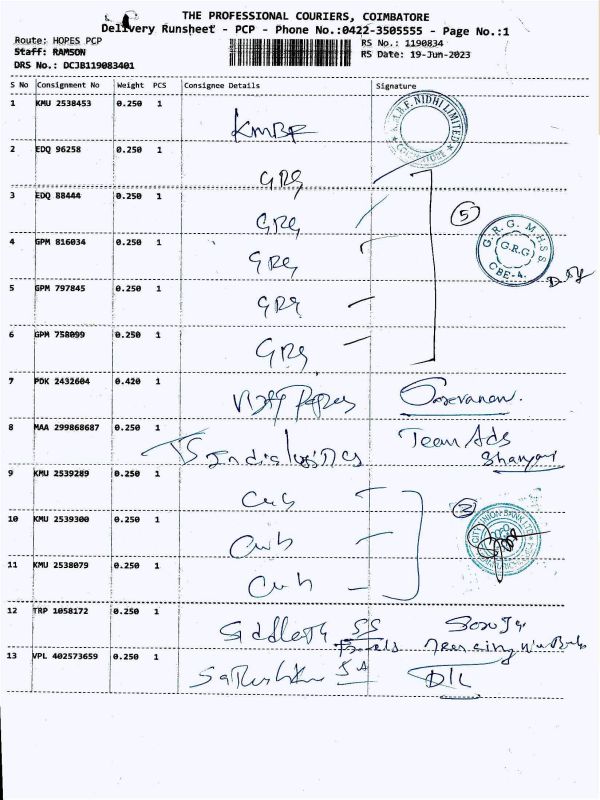 THE PROFESSIONAL COURIERS, COIMBATORE
Delivery Runsheet - PCP - Phone No.:0422-3505555 - Page No.:1
Route: HOPES PCP
RS No.: 1190834
Staff: RAMSON
RS Date: 19-Jun-2023
DRS No.: DCJB119083401
S No Consignment No Weight PCS Consignee Details Signature
1 KMU 2538453 0.250 1 KMBF
NIDHI LIMITED
2 EDQ 96258 0.250 1 GRG
3 EDQ 88444 0.250 1 GRG
5
4 GPM 816034 0.250 1 GRG
G.R.G. M.H.S.S.
G.R.G
CBE-4.
5 GPM 797845 0.250 1 GRG
6 GPM 758099 0.250 1 GRG
7 PDK 2432604 0.420 1 Saravanan.
8 MAA 299868687 0.250 1 TS India Team Ads
9 KMU 2539289 0.250 1 Cub
3
CITY UNION BANK LTD
10 KMU 2539300 0.250 1 Cub
11 KMU 2538079 0.250 1 Cub
12 TRP 1058172 0.250 1 SS
13 VPL 402573659 0.250 1